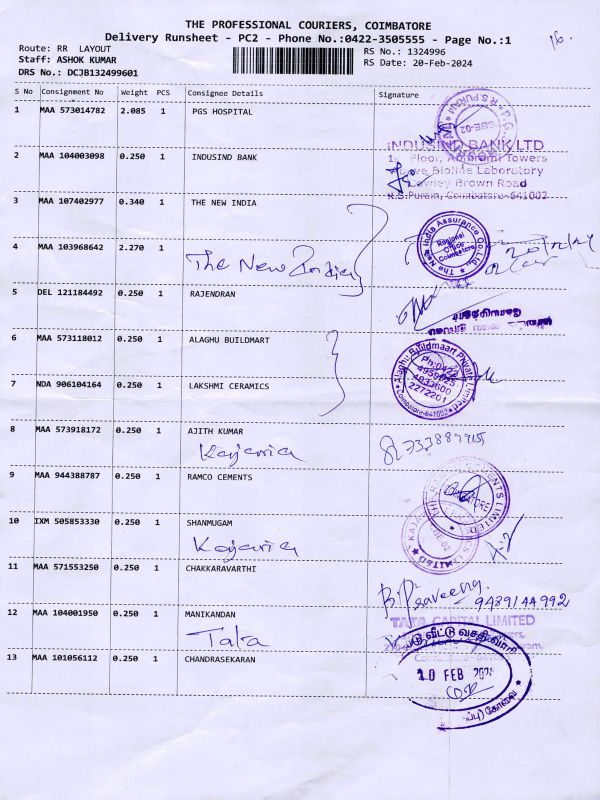 THE PROFESSIONAL COURIERS, COIMBATORE
Delivery Runsheet - PC2 - Phone No.:0422-3505555 - Page No.:1
16.
Route: RR LAYOUT
RS No.: 1324996
Staff: ASHOK KUMAR
RS Date: 20-Feb-2024
DRS No.: DCJB132499601
S No Consignment No Weight PCS Consignee Details Signature
1 MAA 573014782 2.085 1 PGS HOSPITAL
R.S.PURAM
INDUSIND BANK LTD
2 MAA 104003098 0.250 1 INDUSIND BANK
Floor, Abirami Towers
Above Bioline Laboratory
Cowley Brown Road
R.S.Puram, Coimbatore-641002
3 MAA 107402977 0.340 1 THE NEW INDIA
The New India Assurance Co.Ltd.
Regional Office Coimbatore
4 MAA 103968642 2.270 1
The New India
5 DEL 121184492 0.250 1 RAJENDRAN
6 MAA 573118012 0.250 1 ALAGHU BUILDMART
Alaghu Buildmaart Private Limited
Ph:0422
2272201
Coimbatore-641002
7 NDA 906104164 0.250 1 LAKSHMI CERAMICS
8 MAA 573918172 0.250 1 AJITH KUMAR
Kajaria
9 MAA 944388787 0.250 1 RAMCO CEMENTS
10 IXM 505853330 0.250 1 SHANMUGAM
Kajaria
11 MAA 571553250 0.250 1 CHAKKARAVARTHI
B. Praveena.
9489144992
12 MAA 104001950 0.250 1 MANIKANDAN
TATA CAPITAL LIMITED
Tata
13 MAA 101056112 0.250 1 CHANDRASEKARAN
FEB